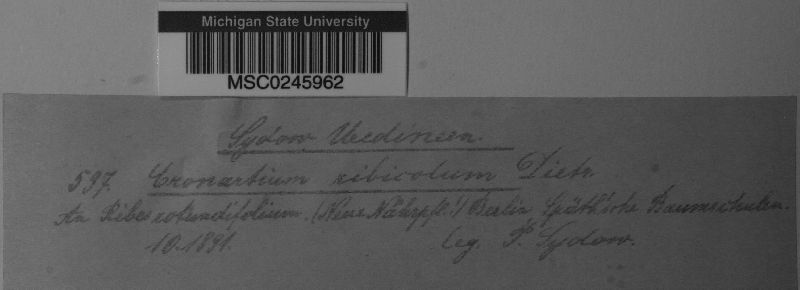 Michigan State University
MSC0245962
Sydow Uredineen.
597. Cronartium ribicolum Dietr.
An Ribes rotundifolium. (Neue Nährpfl.!) Berlin, Späth'sche Baumschulen.
10.1891. leg. P. Sydow.